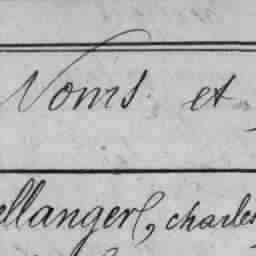 Noms et
ellanger, charles